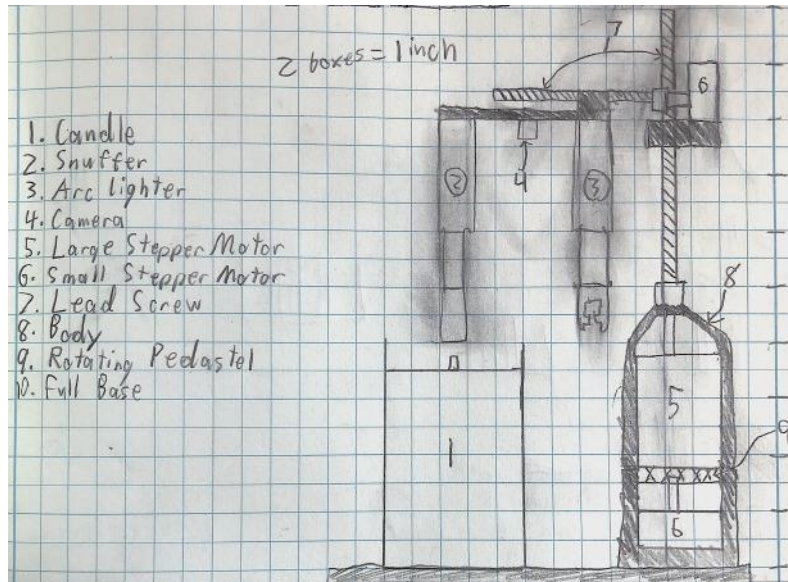 2 boxes = 1 inch
1. Candle
2. Snuffer
3. Arc lighter
4. Camera
5. Large Stepper Motor
6. Small Stepper Motor
7. Lead Screw
8. Body
9. Rotating Pedastel
10. Full Base
7
6
2
4
3
8
5
1
9
X X X X X
6